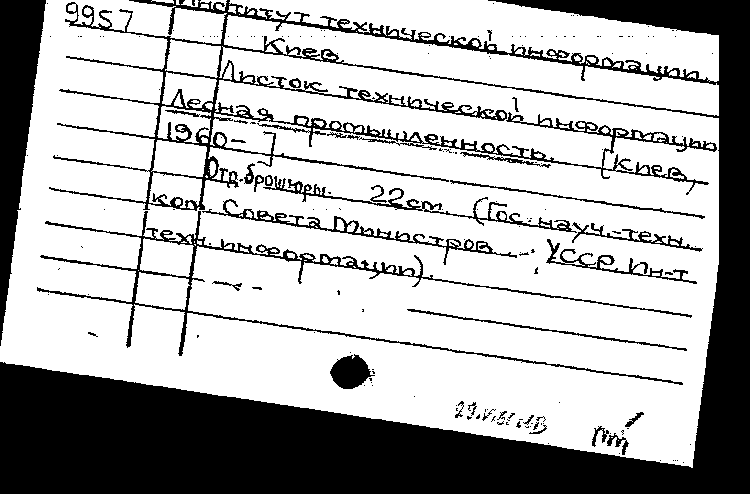 9957 Институт технической информации.
Киев.
Листок технической информации
Лесная промышленность. [Киев,
1960- ]
Отд. брошюры. 22 cm. (Гос. науч.-техн.
ком. Совета Министров ... УССР. Ин-т
техн. информации).